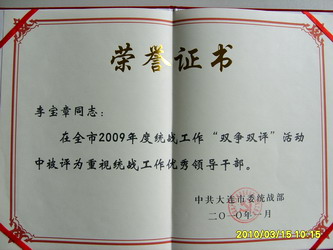 荣誉证书
李宝章同志：
在全市2009年度统战工作“双争双评”活动
中被评为重视统战工作优秀领导干部。
中共大连市委统战部
二〇一〇年一月
2010/03/15 10:15